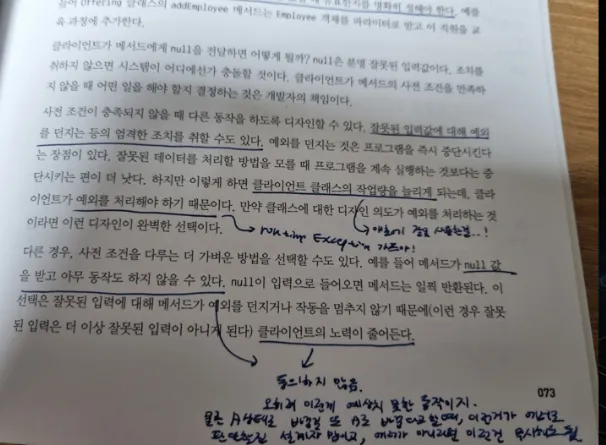 들어 Offering 클래스의 addEmployee 메서드는 Employee 객체를 파라미터로 받고 이 직원을 교
육 과정에 추가한다.
클라이언트가 메서드에게 null을 전달하면 어떻게 될까? null은 분명 잘못된 입력값이다. 조치를
취하지 않으면 시스템이 어디에선가 충돌할 것이다. 클라이언트가 메서드의 사전 조건을 만족하
지 않을 때 어떤 일을 해야 할지 결정하는 것은 개발자의 책임이다.
사전 조건이 충족되지 않을 때 다른 동작을 하도록 디자인할 수 있다. 잘못된 입력값에 대해 예외
를 던지는 등의 엄격한 조치를 취할 수도 있다. 예외를 던지는 것은 프로그램을 즉시 중단시킨다
는 장점이 있다. 잘못된 데이터를 처리할 방법을 모를 때 프로그램을 계속 실행하는 것보다는 중
단시키는 편이 더 낫다. 하지만 이렇게 하면 클라이언트 클래스의 작업량을 늘리게 되는데, 클라
이언트가 예외를 처리해야 하기 때문이다. 만약 클래스에 대한 디자인 의도가 예외를 처리하는 것
이라면 이런 디자인이 완벽한 선택이다.
runtime Exception
다른 경우, 사전 조건을 다루는 더 가벼운 방법을 선택할 수도 있다. 예를 들어 메서드가 null 값
을 받고 아무 동작도 하지 않을 수 있다. null이 입력으로 들어오면 메서드는 일찍 반환된다. 이
선택은 잘못된 입력에 대해 메서드가 예외를 던지거나 작동을 멈추지 않기 때문에(이런 경우 잘못
된 입력은 더 이상 잘못된 입력이 아니게 된다) 클라이언트의 노력이 줄어든다.
동의하지 않음.
오히려 이런게 예상치 못한 동작이지.
073